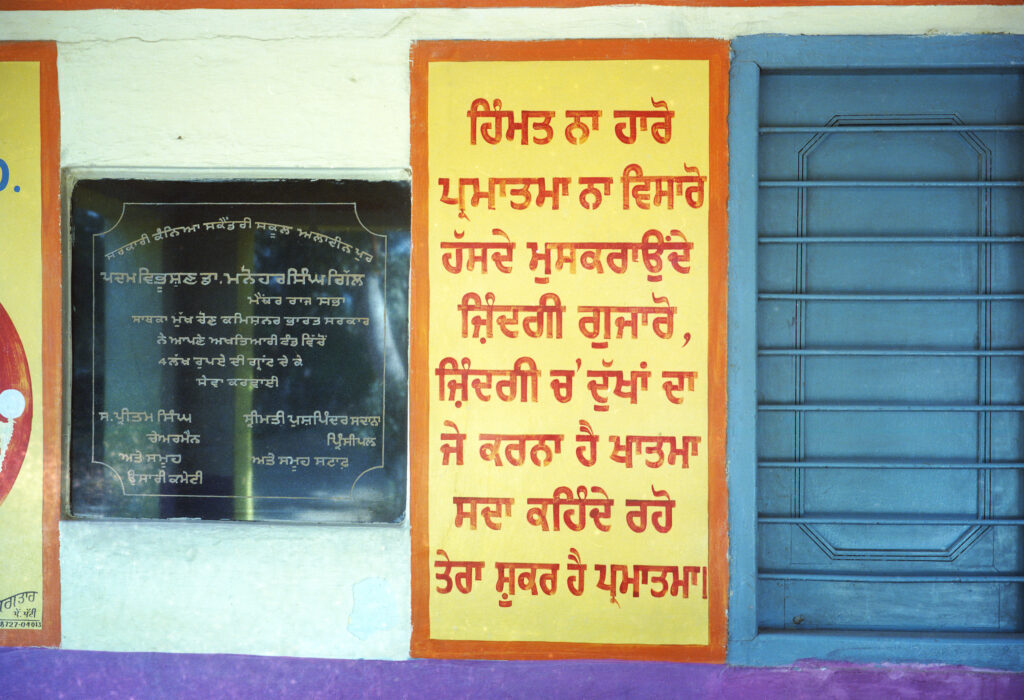 ਸਰਕਾਰੀ ਕੰਨਿਆ ਸਕੈਂਡਰੀ ਸਕੂਲ ਅਲਾਦੀਨ ਪੁਰ
ਪਦਮ ਵਿਭੂਸ਼ਣ ਡਾ. ਮਨੋਹਰ ਸਿੰਘ ਗਿੱਲ
ਮੈਂਬਰ ਰਾਜ ਸਭਾ
ਸਾਬਕਾ ਮੁੱਖ ਚੋਣ ਕਮਿਸ਼ਨਰ ਭਾਰਤ ਸਰਕਾਰ
ਨੇ ਆਪਣੇ ਅਖਤਿਆਰੀ ਫੰਡ ਵਿੱਚੋਂ
4 ਲੱਖ ਰੁਪਏ ਦੀ ਗ੍ਰਾਂਟ ਦੇ ਕੇ
ਸੇਵਾ ਕਰਵਾਈ
ਸ.ਪ੍ਰੀਤਮ ਸਿੰਘ
ਚੇਅਰਮੈਨ
ਅਤੇ ਸਮੂਹ
ਉਸਾਰੀ ਕਮੇਟੀ
ਸ੍ਰੀਮਤੀ ਪੁਸ਼ਪਿੰਦਰ ਸਦਾਨਾ
ਪ੍ਰਿੰਸੀਪਲ
ਅਤੇ ਸਮੂਹ ਸਟਾਫ਼
ਹਿੰਮਤ ਨਾ ਹਾਰੋ
ਪ੍ਰਮਾਤਮਾ ਨਾ ਵਿਸਾਰੋ
ਹੱਸਦੇ ਮੁਸਕਰਾਉਂਦੇ
ਜ਼ਿੰਦਗੀ ਗੁਜਾਰੋ,
ਜ਼ਿੰਦਗੀ ਚ' ਦੁੱਖਾਂ ਦਾ
ਜੇ ਕਰਨਾ ਹੈ ਖਾਤਮਾ
ਸਦਾ ਕਹਿੰਦੇ ਰਹੋ
ਤੇਰਾ ਸ਼ੁਕਰ ਹੈ ਪ੍ਰਮਾਤਮਾ।